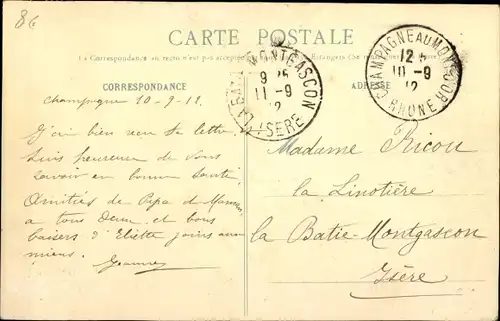 86
CARTE POSTALE
La Correspondance au recto n'est pas acceptée
CORRESPONDANCE
ADRESSE
LA BATIE MONTGASCON
9
11 -9
12
ISERE
CHAMPAGNE AU MONT D'OR
12
10 -9
12
RHONE
Champagne 10-9-12
J'ai bien reçu ta lettre
suis heureuse de vous
savoir en bonne santé
Amitiés de Papa et Maman
a tous deux et bons
baisers d'Eliette joins aux
miens.
Madame Ricou
la Linotière
la Batie-Montgascon
Isère